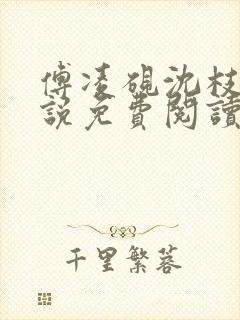 傅凌砚沈枝
説免費閱讀
千里繁蒼